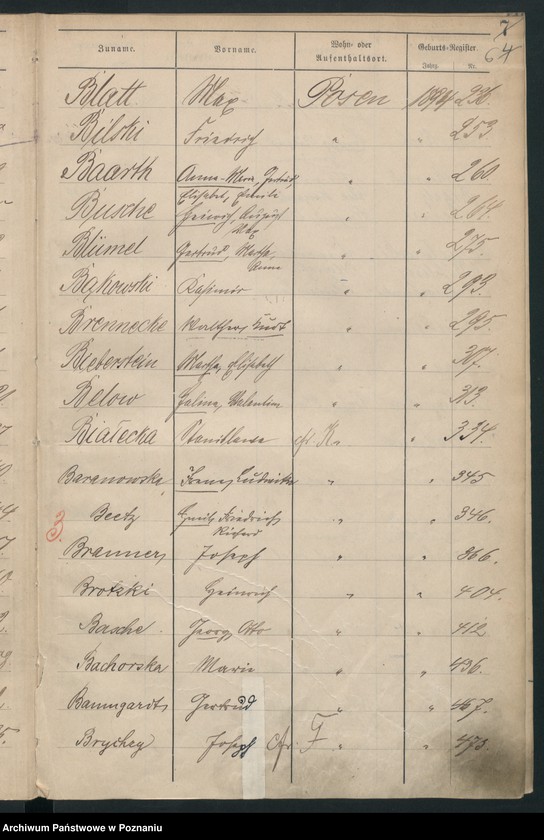 7
64
Zuname. Vorname. Wohn- oder Aufenthaltsort. Geburts-Register.
Jahrg. Nr.
Blatt Max Posen 1894 236.
Bilski Friedrich " " 253
Baarth Anna-Maria, Gertrud, " " 260
Elisabet, Emilie
Busche Heinrich, August " " 264.
Max
Blümel Gertrud, Martha, " " 275.
Anna
Bąkowski Kasimir " " 293.
Brennecke Walther, Kurt " " 295.
Bieberstein Martha, Elisabeth " " 307.
Below Halina, Valentina " " 313.
Białecka Stanislawa " " 334.
Baranowska, Irena, Ludwika " " 345
3.
Beetz Emil, Friedrich, " " 346.
Richard
Branner, Joseph " " 366.
Brotzki Heinrich " " 404.
Basche Georg, Otto " " 412.
Bachorska Marie " " 436.
Baumgardt, Gertrud " " 467.
Joseph F " " 473.
Archiwum Państwowe w Poznaniu